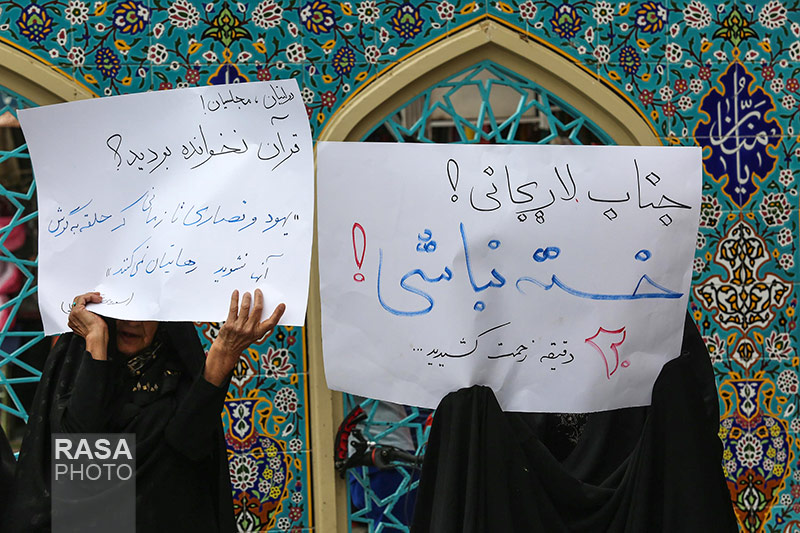 دولتیان، مجلسیان!
قرآن نخوانده بودید؟
«یهود و نصاری تا زمانی که حلقه به گوش
آنها نشوید رهایتان نمی‌کنند»
جناب لاریجانی!
خسته نباشی!!
۲۰ دقیقه زحمت کشیدید...
RASA
PHOTO